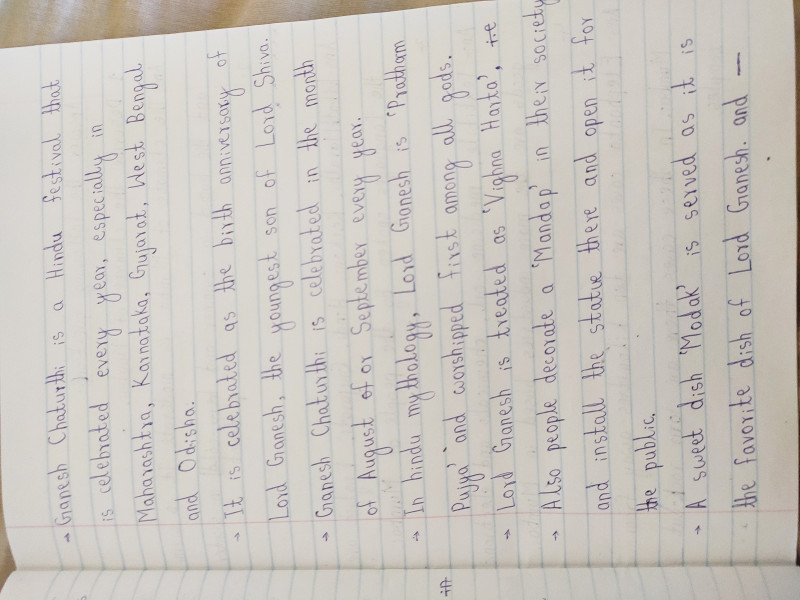 → Ganesh Chaturthi is a Hindu festival that
is celebrated every year, especially in
Maharashtra, Karnataka, Gujarat, West Bengal
and Odisha.
→ It is celebrated as the birth anniversary of
Lord Ganesh, the youngest son of Lord Shiva.
→ Ganesh Chaturthi is celebrated in the month
of August of or September every year.
→ In hindu mythology, Lord Ganesh is 'Pratham
Pujya' and worshipped first among all gods.
→ Lord Ganesh is treated as 'Vighna Harta', i.e
→ Also people decorate a 'Mandap' in their society
and install the statue there and open it for
the public.
→ A sweet dish 'Modak' is served as it is
the favorite dish of Lord Ganesh. and —